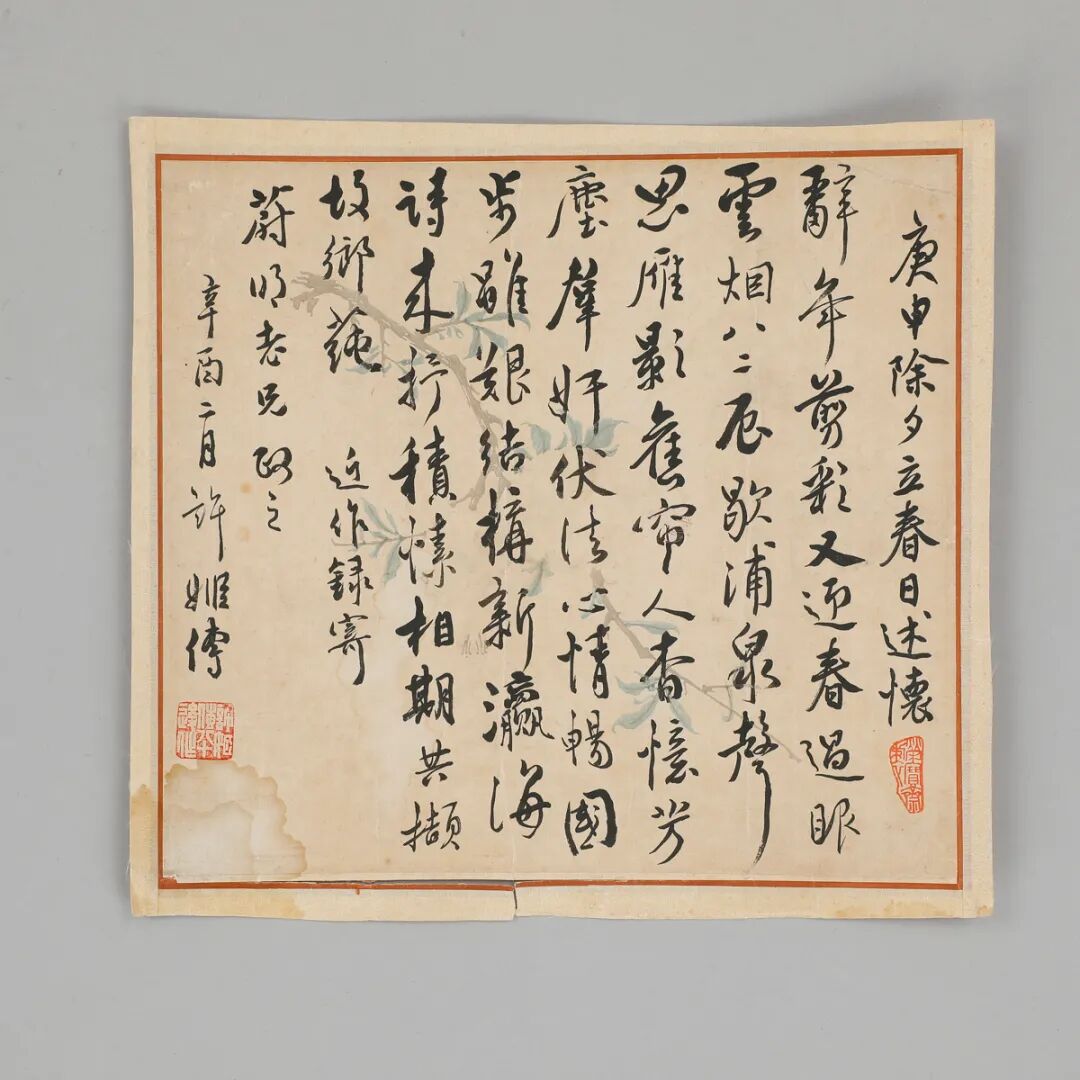 庚申除夕立春日述懷
辭年剪彩又迎春過眼
雲烟八二辰歇浦泉聲
思雁影舊帘人杳憶芳
塵羣奸伏法心情暢國
步雖艱結構新瀛海
詩来抒積愫相期共擷
故鄉蒓 近作録寄
蔚明老兄政之
辛酉二月許姬傳